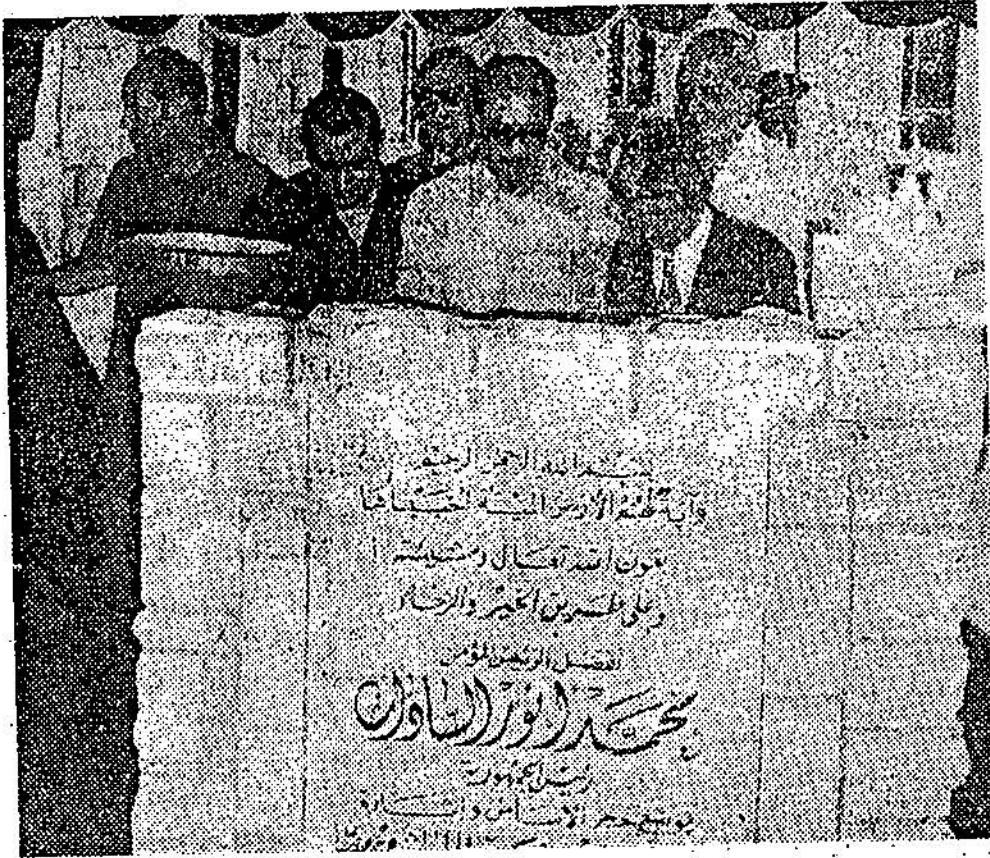 بسم الله الرحمن الرحيم
وآية لهم الأرض الميتة أحييناها
بعون الله تعالى ومشيئته
وعلى طريق الخير والرخاء
تفضل الرئيس المؤمن
محمد أنور السادات
رئيس الجمهورية
بوضع حجر الأساس